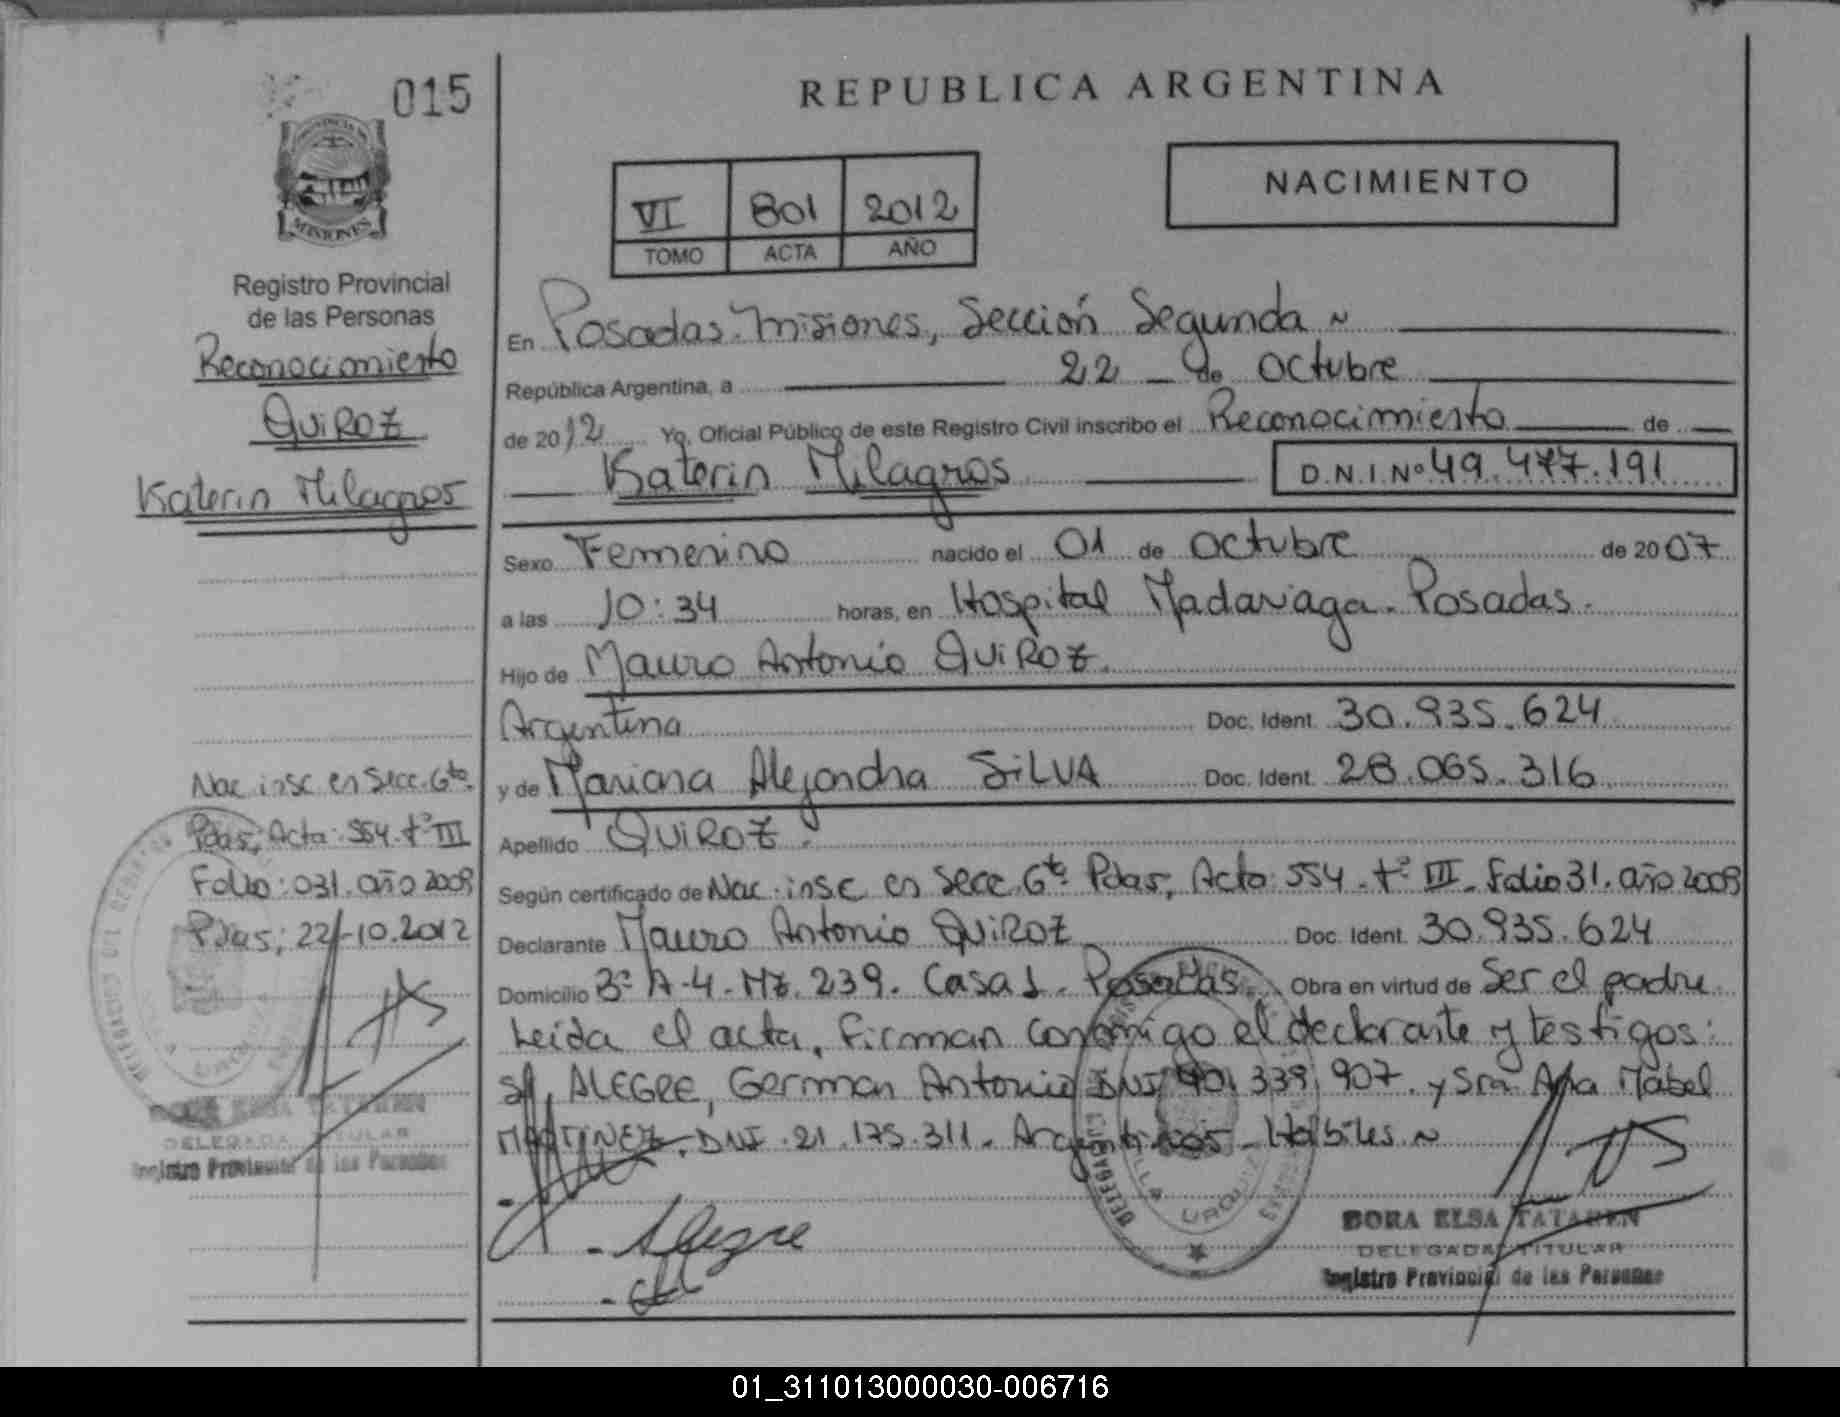 015
PROVINCIA DE
MISIONES
Registro Provincial
de las Personas
Reconocimiento
QUIROZ
Katerin Milagros
Nac. insc en Secc. 6ta.
Pdas, Acta: 554. tº III
Folio: 031. año 2008
Pdas; 22-10.2012
DORA ELSA TATAREN
DELEGADA TITULAR
Registro Provincial de las Personas
REPUBLICA ARGENTINA
VI 801 2012
TOMO ACTA AÑO
NACIMIENTO
En Posadas. Misiones, Sección Segunda ~
República Argentina, a 22 de octubre
de 2012 Yo, Oficial Público de este Registro Civil inscribo el Reconocimiento de
Katerin Milagros D.N.I.Nº 49.477.191
Sexo Femenino nacido el 01 de octubre de 2007
a las 10:34 horas, en Hospital Madariaga. Posadas.
Hijo de Mauro Antonio QUIROZ.
Argentina Doc. Ident. 30.935.624
y de Mariana Alejandra SILVA Doc. Ident. 28.065.316
Apellido QUIROZ.
Según certificado de Nac. insc en Secc. 6ta. Pdas, Acta: 554. tº III. Folio 31. año 2008
Declarante Mauro Antonio QUIROZ Doc. Ident. 30.935.624
Domicilio 3º A-4. Mz. 239. Casa 1. Posadas. Obra en virtud de Ser el padre
Leida el acta, firman conmigo el declarante y testigos:
Sr. ALEGRE, German Antonio DNI 40.339.907. y Sra Ana Mabel
MARTINEZ. DNI. 21.175.311. Argentinos. Habiles ~
Alegre
VILLA URQUIZA
DORA ELSA TATAREN
DELEGADA TITULAR
Registro Provincial de las Personas
01_311013000030-006716